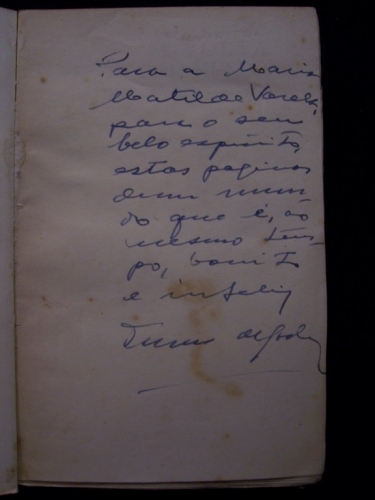 Para a Maria
Matilde Varella,
para o seu
belo espirito,
estas paginas
dum mun
do que é, ao
mesmo tem-
po, bonito
e infeliz